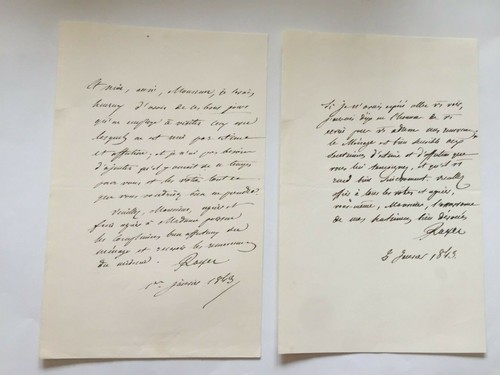 Et moi, aussi, Monsieur, je serais
heureux d'avoir de ces bons jours
qu'on employe à visiter ceux avec
lesquels on est uni par estime
et affection; et je n'ai pas besoin
d'ajouter qu'il y aurait de ce temps
pour vous et les votres tout ce
que vous voudriez bien en prendre.
Veuillez, Monsieur, agréer et
faire agréer à Madame
les complimens bien affectueux du
ménage et recevoir les
du médecin. Rayer
1er janvier 1843
Si je n'avais espéré aller vous voir,
j'aurais déjà eu l'honneur de vous
écrire pour vous
le Ménage est bien sensible aux
d'estime et d'affection que
vous lui témoignez, et qu'il vous
rend bien sincèrement. Veuillez
offrir à tous les votres et agréer,
vous-même, Monsieur, l'assurance
de nos sentimens bien dévoués
Rayer
2 Janvier 1843.